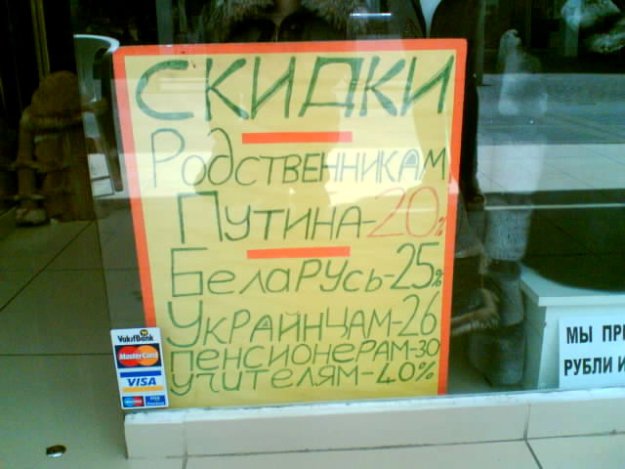 СКИДКИ
РОДСТВЕННИКАМ
ПУТИНА-20%
БЕЛАРУСЬ-25%
УКРАЙНЦАМ-26
ПЕНСИОНЕРАМ-30
УЧИТЕЛЯМ-40%
VakıfBank
MasterCard
VISA
МЫ ПРИ
РУБЛИ И